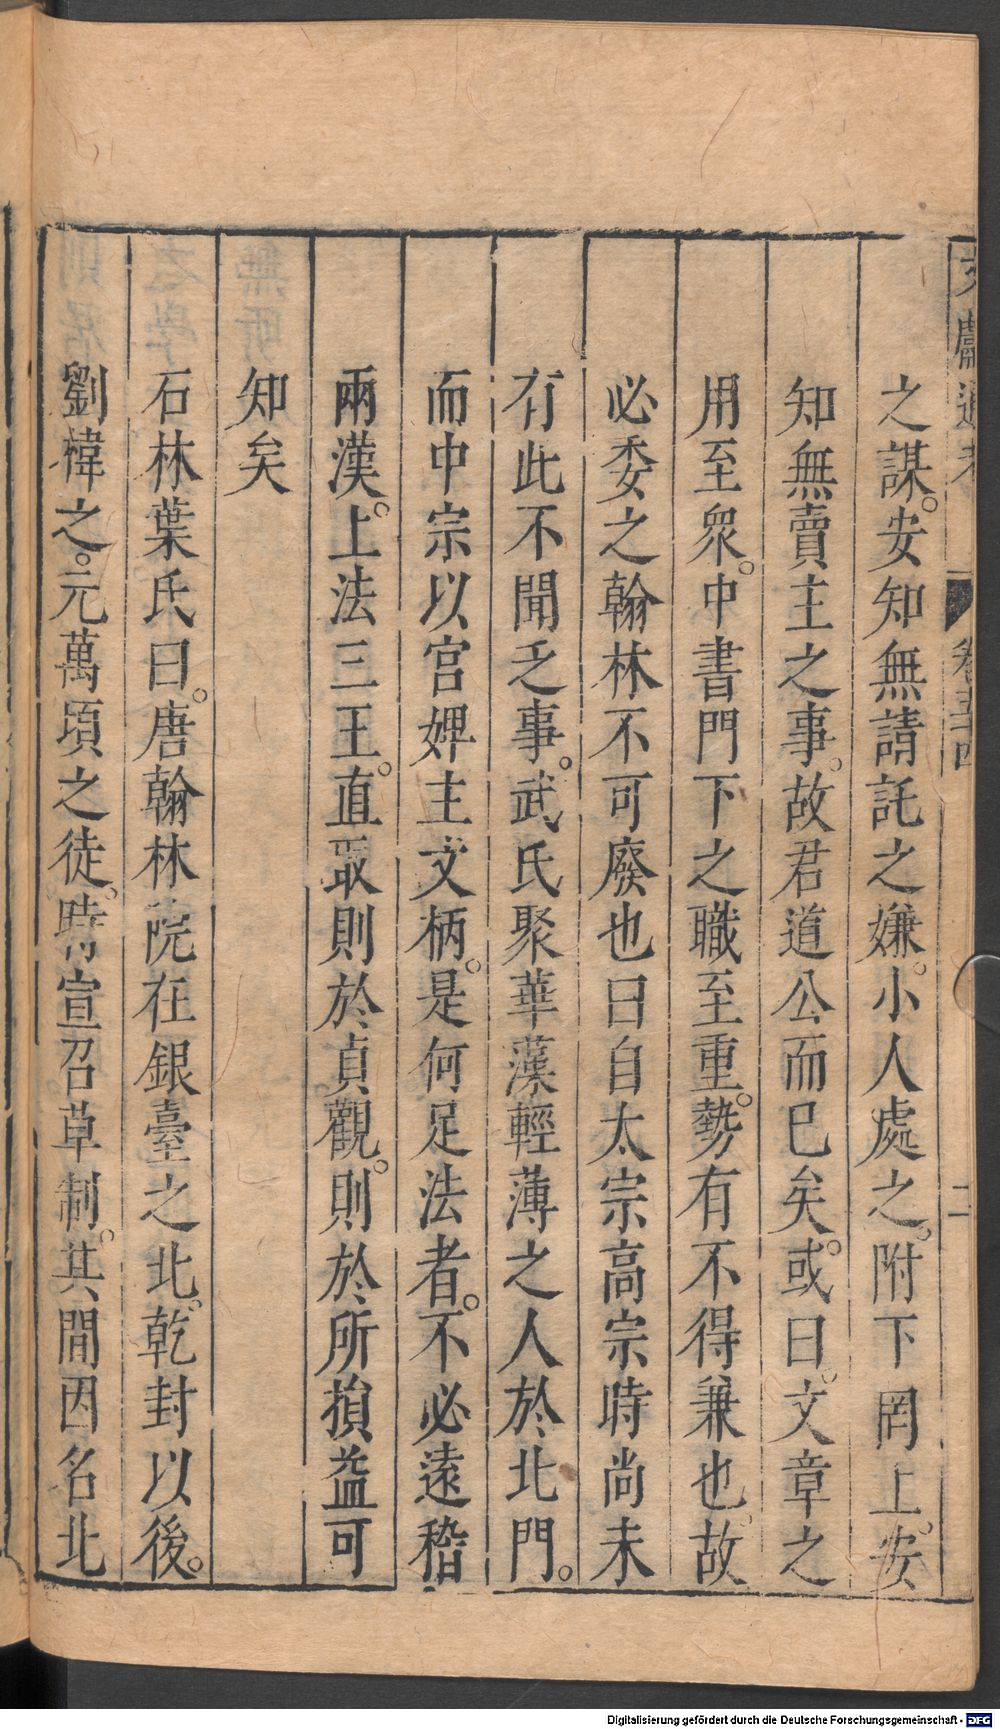 文獻通考 卷五十四 二
之謀。安知無請託之嫌。小人處之。附下罔上。安
知無賣主之事。故君道公而已矣。或曰。文章之
用至衆。中書門下之職至重。勢有不得兼也。故
必委之翰林不可廢也曰自太宗高宗時尚未
有此不聞乏事。武氏聚華藻輕薄之人於北門。
而中宗以宫婢主文柄。是何足法者。不必遠稽
兩漢。上法三王。直取則於貞觀。則於所損益可
知矣
石林葉氏曰。唐翰林院在銀臺之北。乾封以後。
劉褘之。元萬頃之徒。時宣召草制。其間因名北
Digitalisierung gefördert durch die Deutsche Forschungsgemeinschaft - DFG